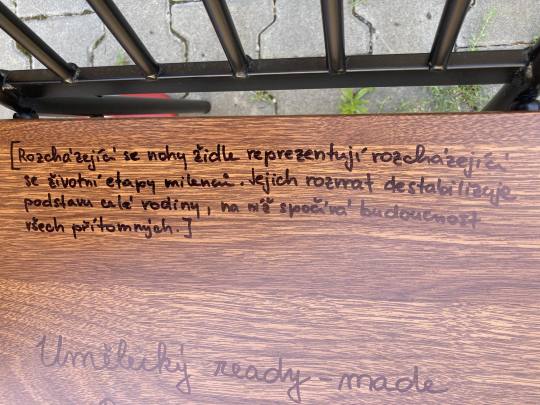 [Rozcházející se nohy židle reprezentují rozcházející
se životní etapy milenců. Jejich rozvrat destabilizuje
podstavu celé rodiny, na níž spočívá budoucnost
všech přítomných.]
Umělecký ready-made